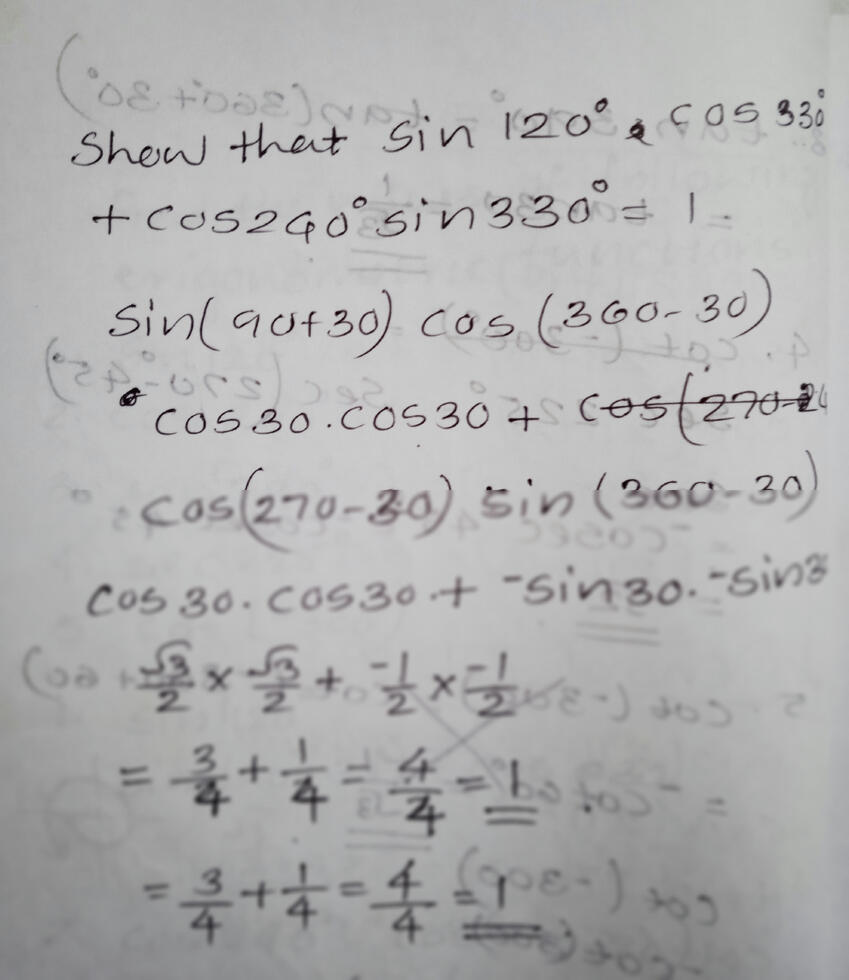 Show that sin 120° cos 330°
+ cos240° sin330° = 1.
sin(90+30) cos (360-30)
cos 30 . cos 30 +
cos(270-30) sin (360-30)
cos 30 . cos 30 . + -sin30. -sin3
√3/2 × √3/2 + -1/2 × -1/2
= 3/4 + 1/4 = 4/4 = 1
= 3/4 + 1/4 = 4/4 = 1